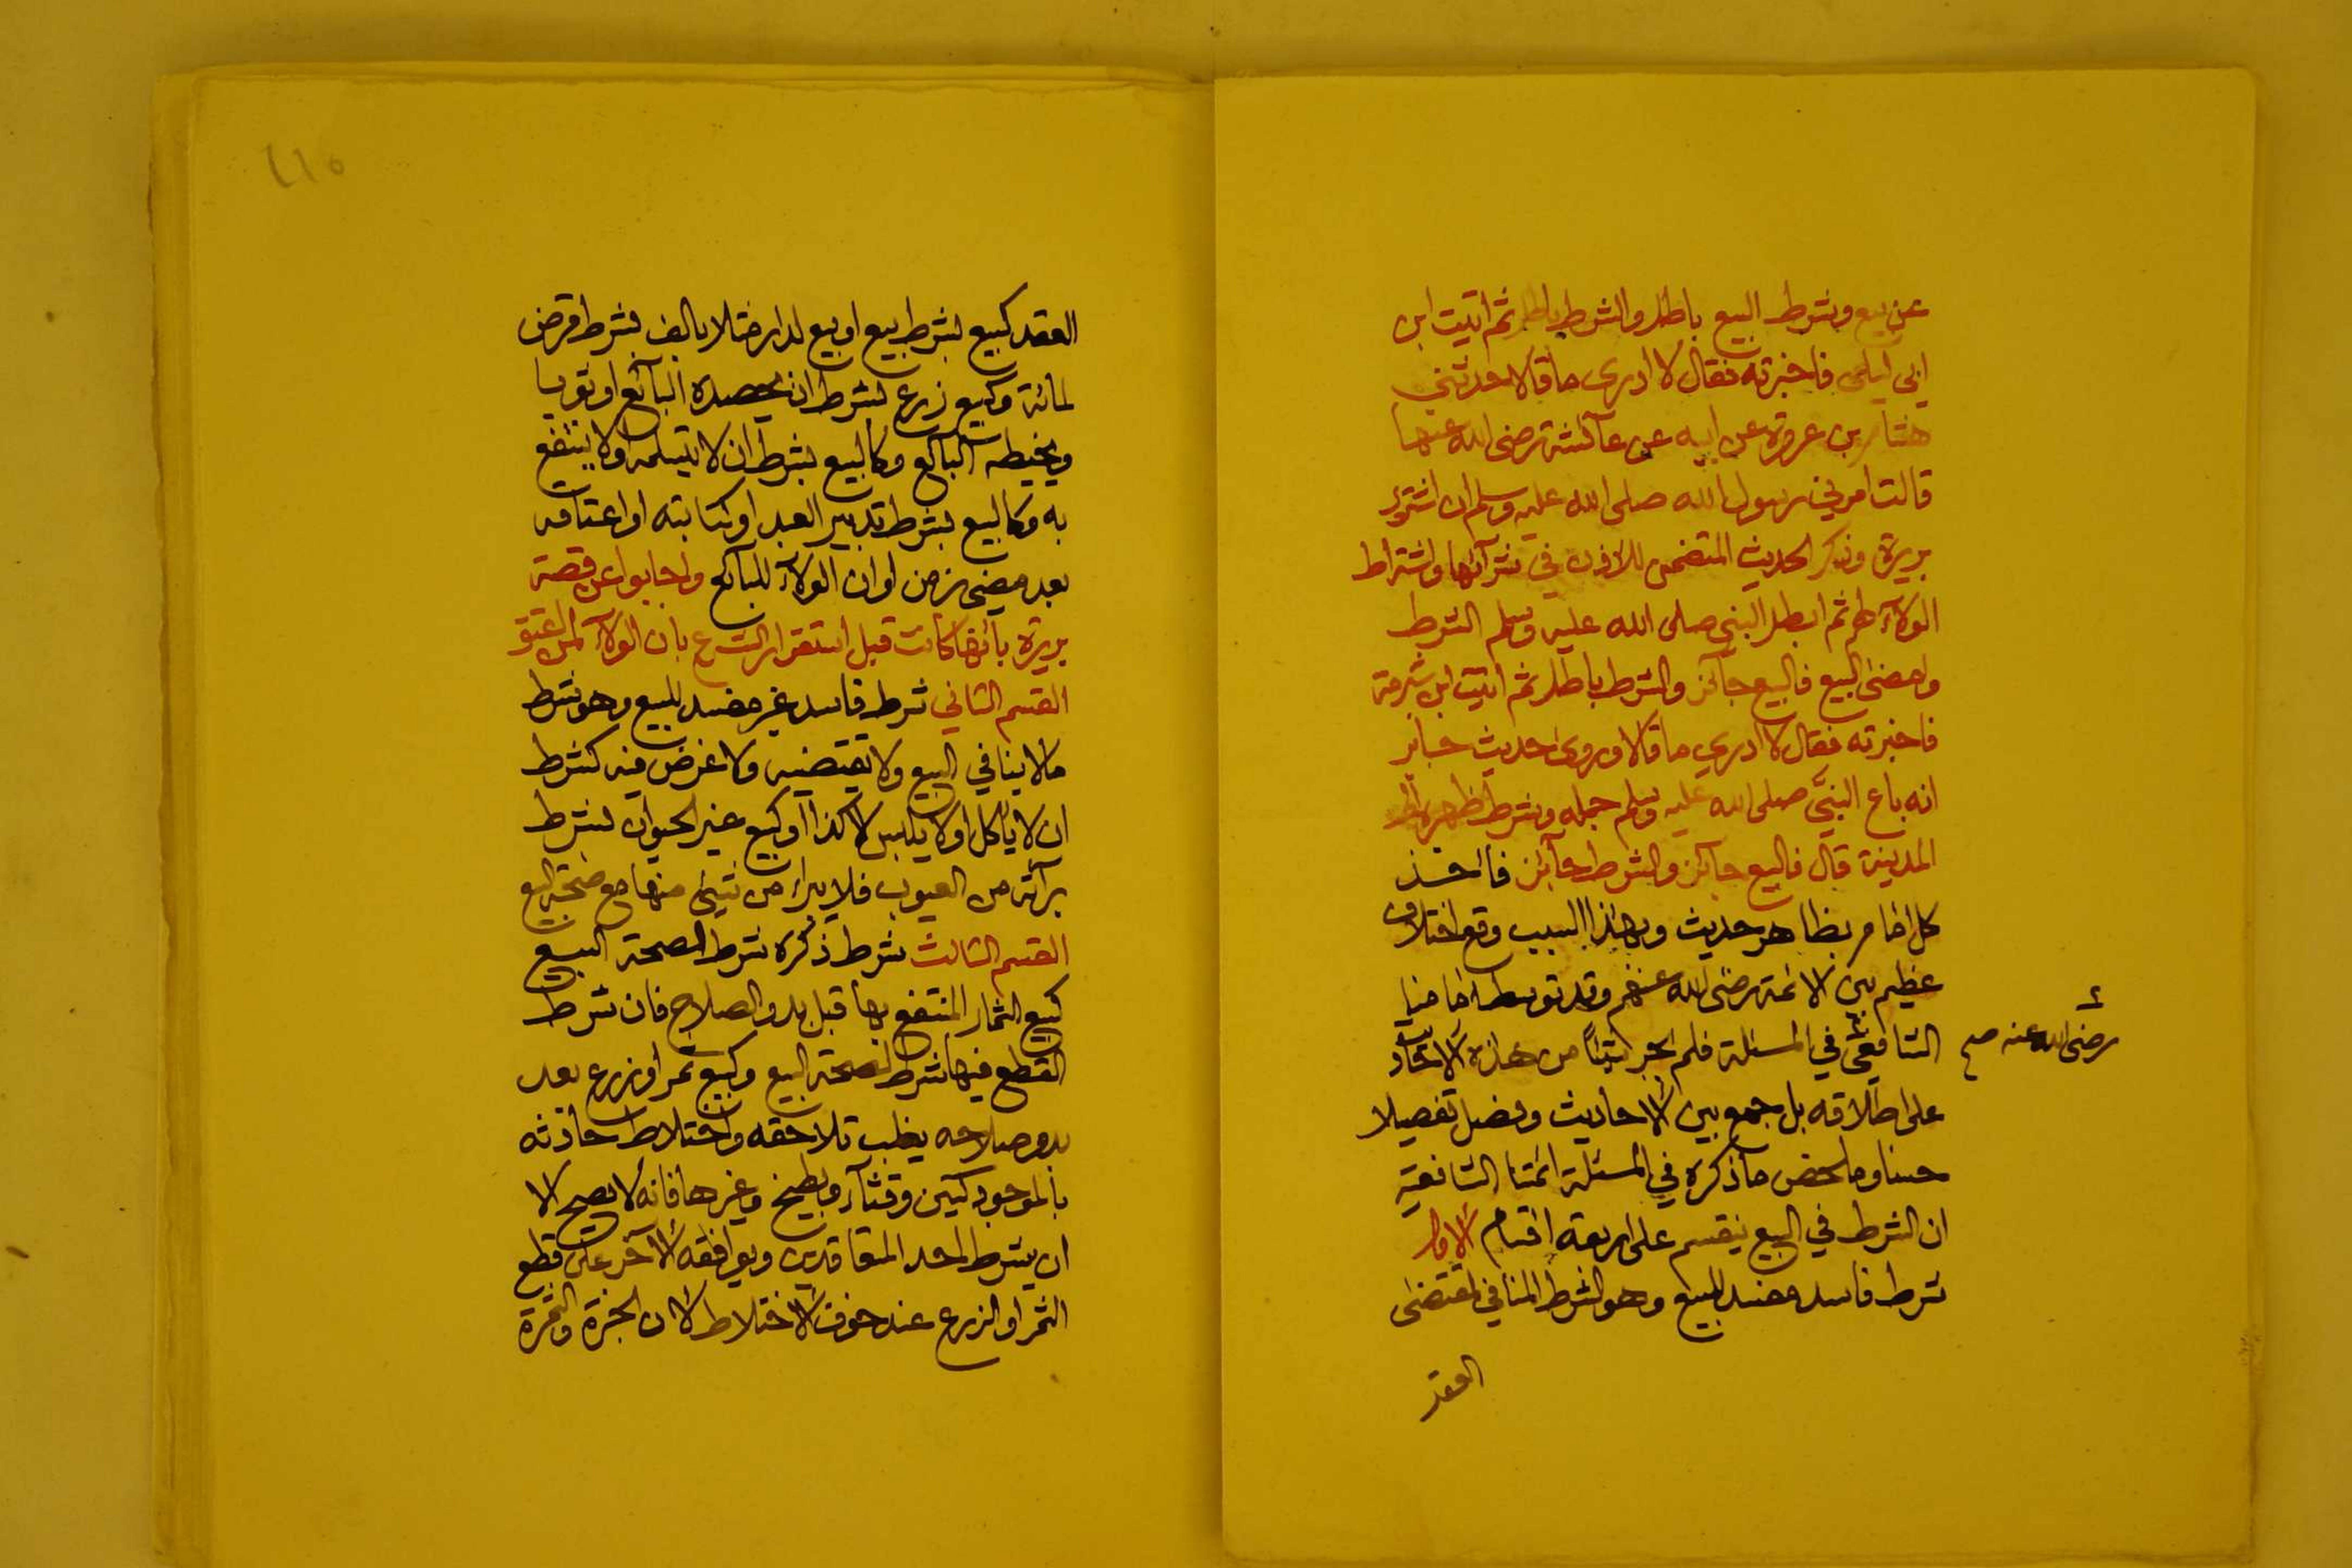 عن بيع وشرط البيع باطل والشرط باطل ثم اتيت ابن
ابي ليلى فاخبرته فقال لا ادري ما قالا حدثني
هشام بن عروة عن ابيه عن عآئشة رضى الله عنها
قالت امرني رسول الله صلى الله عليه وسلم ان اشترى
بريرة وذكر الحديث المتضمن للاذن في شرآئها واشتراط
الولآء لهم ثم ابطل النبي صلى الله عليه وسلم الشرط
وامضى البيع فالبيع جآئز والشرط باطل ثم اتيت ابن شبرمة
فاخبرته فقال لا ادري ما قالا وروى حديث جابر
انه باع النبيَّ صلى الله عليه وسلم جمله وشرط ظهره الى
المدينة قال فالبيع جآئز والشرط جآئز فاخذ
كل امام بظاهر حديث وبهذا السبب وقع اختلاف
عظيم بين الائمة رضى الله عنهم وقد توسط امامنا
الشافعي في المسئلة فلم يجر شيئاً من هذه الاحاديث
رضى الله عنه صح
على اطلاقه بل جمع بين الاحاديث وفصل تفصيلا
حسنا وملخص ما ذكره في المسئلة ائمتنا الشافعية
ان الشرط في البيع ينقسم على اربعة اقسام الاول
شرط فاسد مفسد للبيع وهو الشرط المنافي لمقتضى
العقد
٢١٥
العقد كبيع بشرط بيع او بيع لدار مثلا بالف بشرط قرض
لمائة وكبيع زرع بشرط ان يحصده البآئع او ثوب
ويخيطه البآئع وكالبيع بشرط ان لا يتسلمه ولا ينتفع
به وكالبيع بشرط تدبير العبد او كتابته او اعتاقه
بعد مضى زمن او ان الولآء للبآئع واجابوا عن قصة
بريرة بانها كانت قبل استقرار الشرع بان الولآء لمن اعتق
القسم الثاني شرط فاسد غير مفسد للبيع وهو شرط
ما لا ينافي البيع ولا يقتضيه ولا غرض فيه كشرط
ان لا ياكل او لا يلبس الا كذا او كبيع غير الحيوان بشرط
برآئته من العيوب فلا يبرا من شيئ منها مع صحة البيع
القسم الثالث شرط ذكره شرط لصحة البيع
كبيع الثمار المنتفع بها قبل بدو الصلاح فان شرط
القطع فيها شرط لصحة البيع وكبيع ثمر او زرع بعد
بدو صلاحه يغلب تلاحقه واختلاط حادثه
بالموجود كتين وقثآء وبطيخ وغيرها فانه لا يصح الا
ان يشرط احد المتعاقدين ويوافقه الآخر على قطع
الثمر او الزرع عند خوف الاختلاط لان الجزة والثمرة